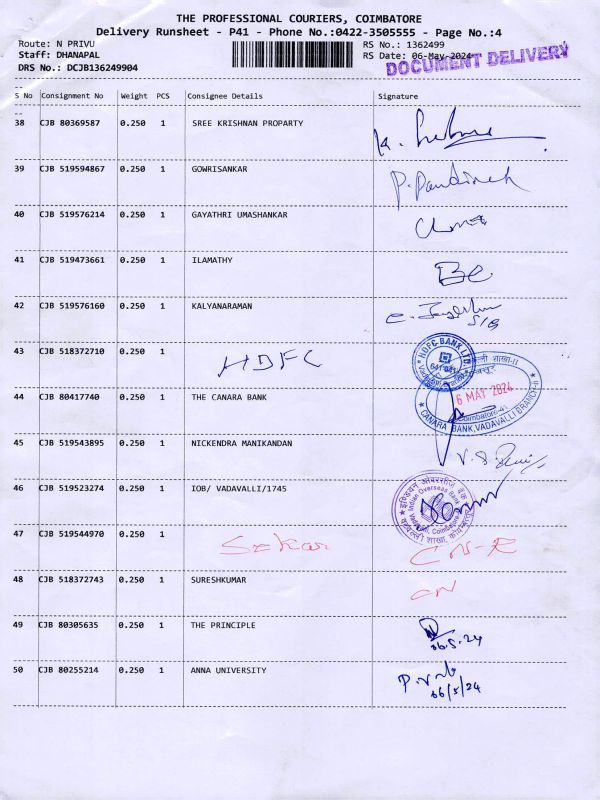 THE PROFESSIONAL COURIERS, COIMBATORE
Delivery Runsheet - P41 - Phone No.:0422-3505555 - Page No.:4
Route: N PRIVU RS No.: 1362499
Staff: DHANAPAL RS Date: 06-May-2024
DRS No.: DCJB136249904 DOCUMENT DELIVERY
S No Consignment No Weight PCS Consignee Details Signature
38 CJB 80369587 0.250 1 SREE KRISHNAN PROPARTY
39 CJB 519594867 0.250 1 GOWRISANKAR
40 CJB 519576214 0.250 1 GAYATHRI UMASHANKAR
41 CJB 519473661 0.250 1 ILAMATHY
42 CJB 519576160 0.250 1 KALYANARAMAN
43 CJB 518372710 0.250 1 HDFC
HDFC BANK LTD
44 CJB 80417740 0.250 1 THE CANARA BANK
6 MAY 2024
Coimbatore-41
CANARA BANK, VADAVALLI BRANCH-II
45 CJB 519543895 0.250 1 NICKENDRA MANIKANDAN
46 CJB 519523274 0.250 1 IOB/ VADAVALLI/1745
Indian Overseas Bank
Vadavalli, Coimbatore
47 CJB 519544970 0.250 1 Sekar
48 CJB 518372743 0.250 1 SURESHKUMAR
49 CJB 80305635 0.250 1 THE PRINCIPLE
06.5.24
50 CJB 80255214 0.250 1 ANNA UNIVERSITY
06/5/24